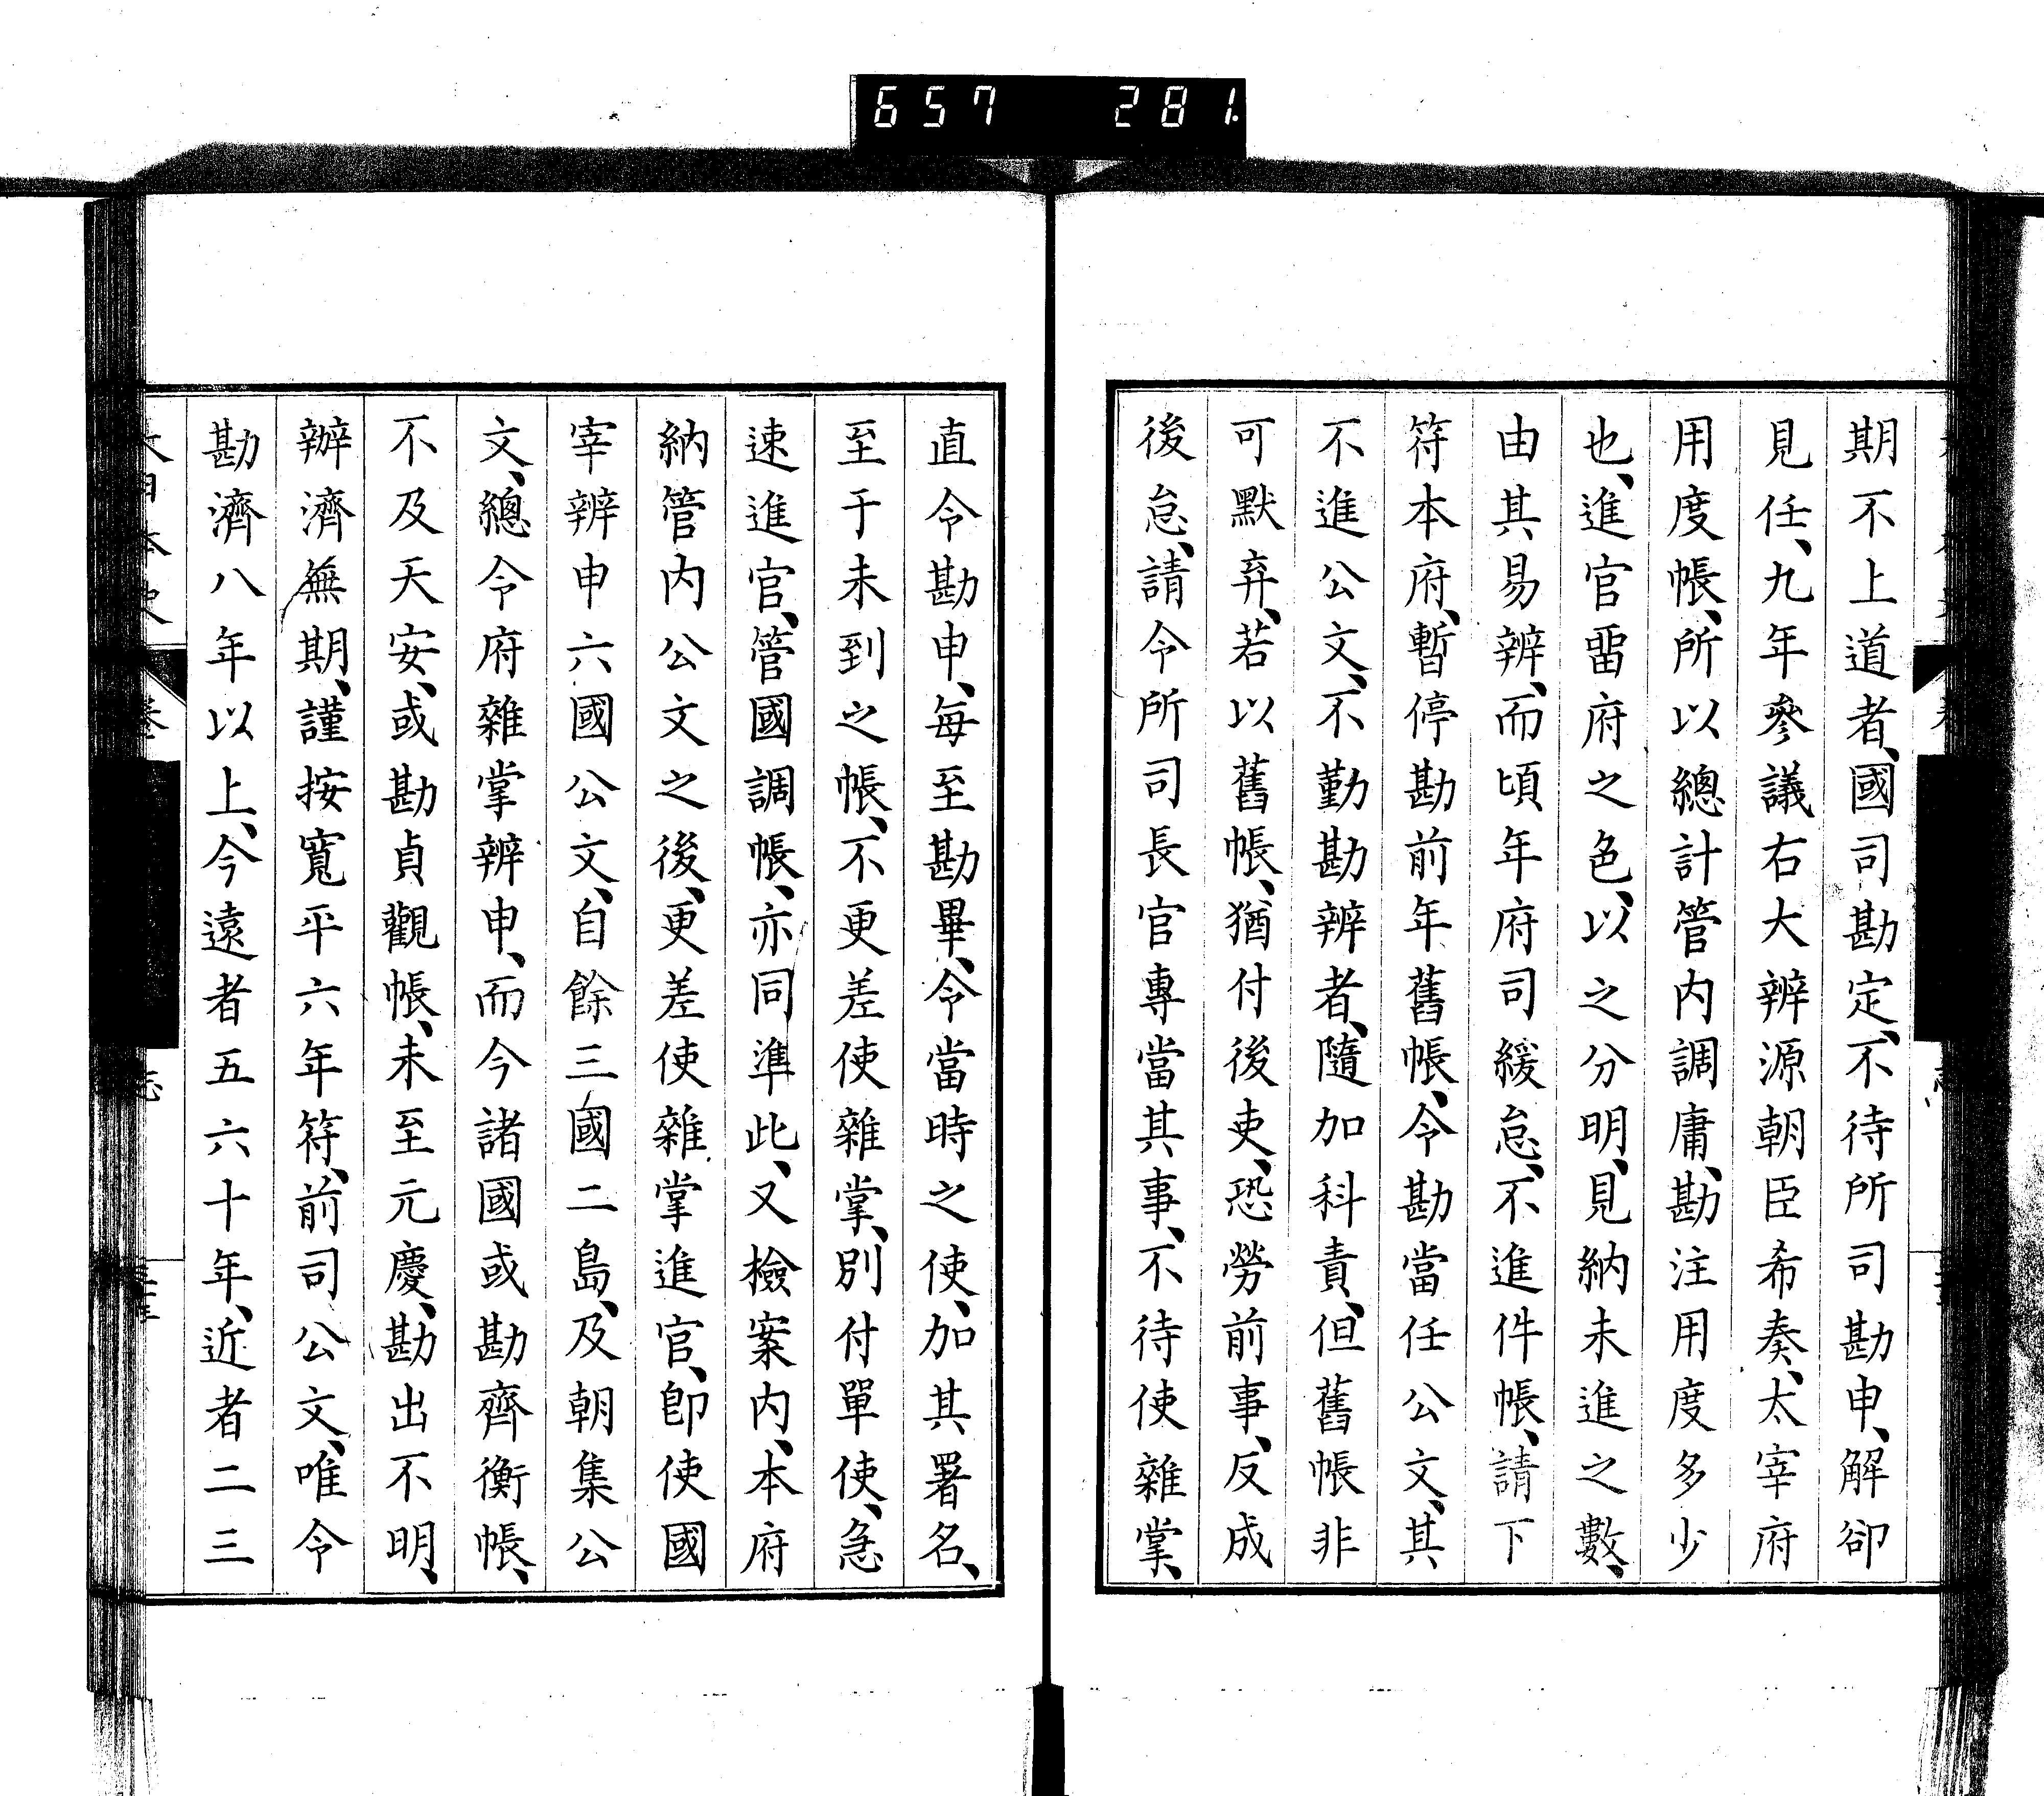 657 281.
期不上道者、國司勘定、不待所司勘申、解卻
見任、九年參議右大辨源朝臣希奏、太宰府
用度帳、所以總計管内調庸、勘注用度多少
也、進官畱府之色、以之分明、見納未進之數、
由其易辨、而頃年府司緩怠、不進件帳、請下
符本府、暫停勘前年舊帳、令勘當任公文、其
不進公文、不勤勘辨者、隨加科責、但舊帳非
可默弃、若以舊帳、猶付後吏、恐勞前事、反成
後怠、請令所司長官專當其事、不待使雜掌、
直令勘申、每至勘畢、令當時之使、加其署名、
至于未到之帳、不更差使雜掌、別付單使、急
速進官、管國調帳、亦同準此、又檢案内、本府
納管内公文之後、更差使雜掌進官、卽使國
宰辨申六國公文、自餘三國二島、及朝集公
文、總令府雜掌辨申、而今諸國或勘齊衡帳、
不及天安、或勘貞觀帳、未至元慶、勘出不明、
辨濟無期、謹按寬平六年符、前司公文、唯令
勘濟八年以上、今遠者五六十年、近者二三